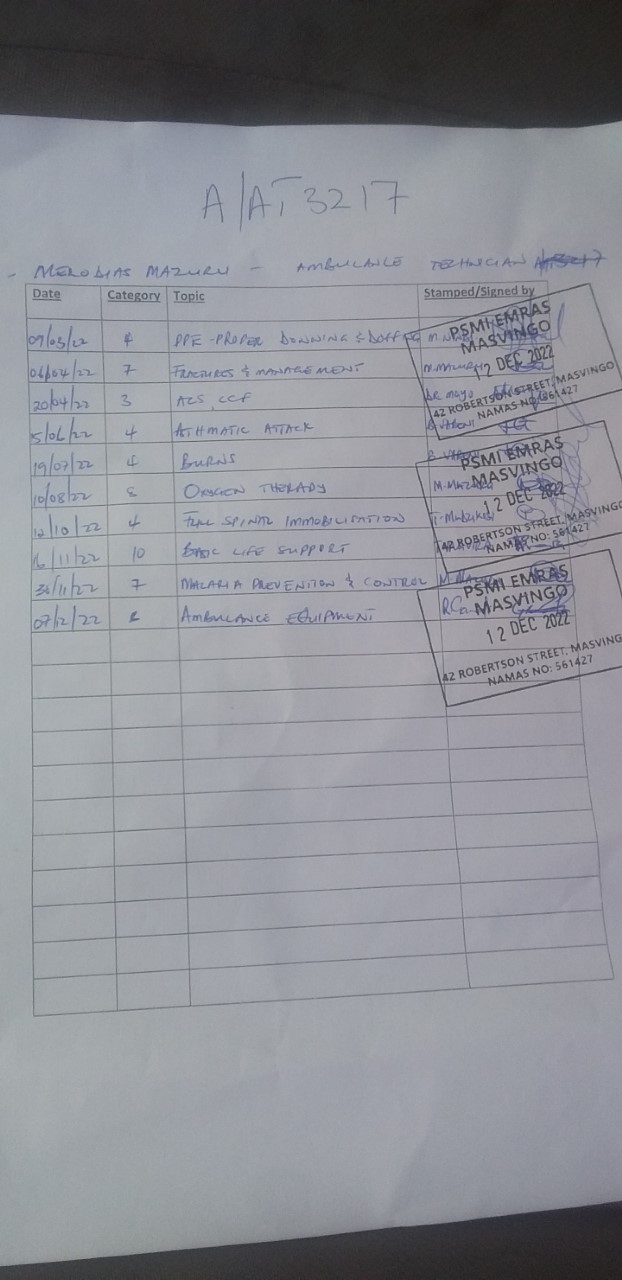 A/AT 3217
- MERODIAS MAZURU - AMBULANCE TECHNICIAN
Date Category Topic Stamped/Signed by
09/03/22 4 PPE - PROPER DONNING & DOFFING
06/04/22 7 FRACTURES & MANAGEMENT
20/04/22 3 ACS, CCF DR mayo
4 ATHMATIC ATTACK
19/07/22 4 BURNS
10/08/22 OXYGEN THERAPY
12/10/22 4 FULL SPINAL IMMOBILISATION
16/11/22 10 BASIC LIFE SUPPORT
7 MALARIA PREVENTION & CONTROL
07/12/22 AMBULANCE EQUIPMENT
PSMI EMRAS
MASVINGO
12 DEC 2022
42 ROBERTSON STREET, MASVINGO
NAMAS NO: 561427
PSMI EMRAS
MASVINGO
12 DEC 2022
42 ROBERTSON STREET, MASVINGO
NAMAS NO: 561427
PSMI EMRAS
MASVINGO
12 DEC 2022
42 ROBERTSON STREET, MASVINGO
NAMAS NO: 561427